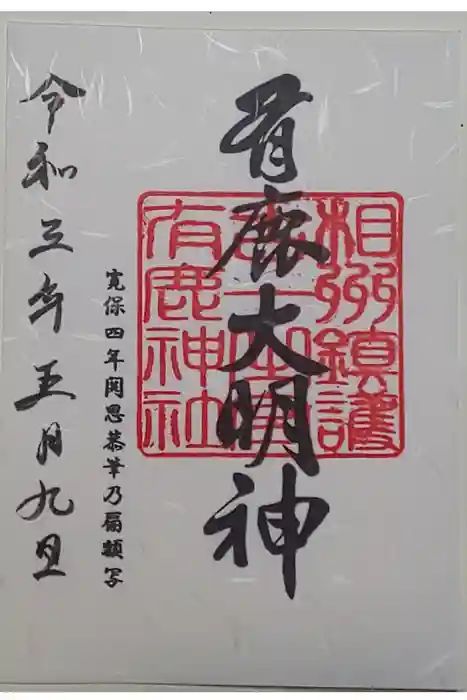 相州鎮護
有鹿大明神
有鹿神社
寛保四年関思恭筆乃扁額写
令和三年五月九日